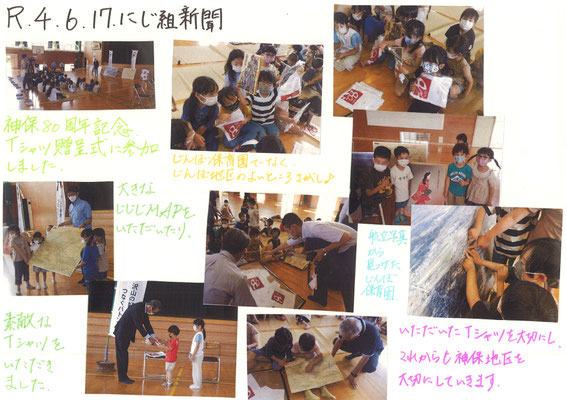 R.4.6.17.にじ組新聞
神保80周年記念
Tシャツ贈呈式に参加
しました.
じんぼ保育園って
じんぼ地区のよいところさがし♪
大きな
じじじMAPを
いただいたり、
航空写真
から
見つけた
じんぼ
保育園
素敵な
Tシャツを
いただき
ました.
いただいたTシャツを大切にし、
これからも神保地区を
大切にしていきます.